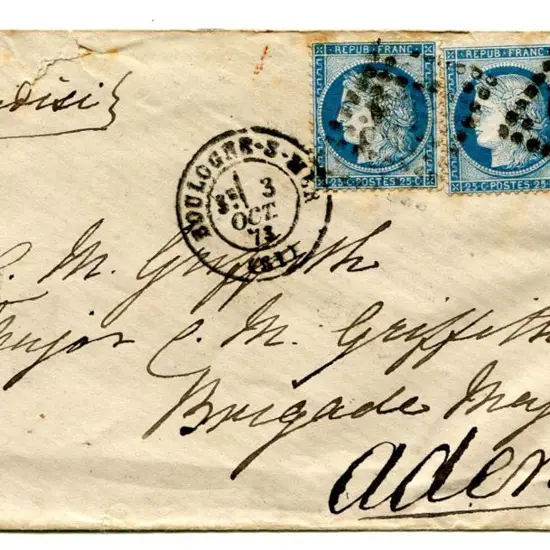 REPUB·FRANC· REPUB·FRANC·
25·C·POSTES·25·C· 25·C·POSTES·25·C·
BOULOGNE-S-MER
3
OCT.
73
(61)
C. M. Griffith
C. M. Griffith
Brigade Maj
aden